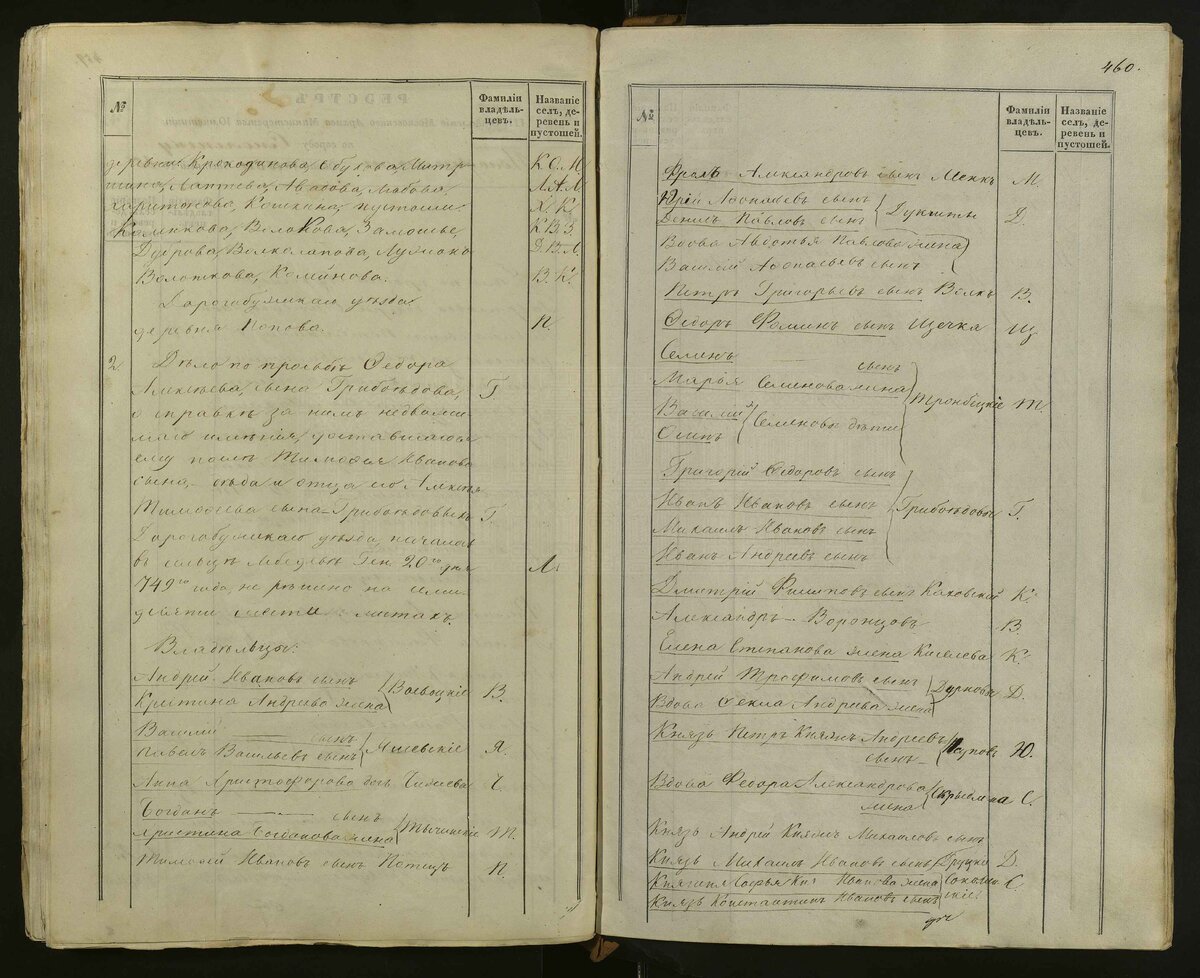 №
Фамиліи владѣль-цевъ.
Названіе селъ, де-ревень и пустошей.
деревни Кроходанова, Обухова, Митр-
К О. М,
шина, Лаптева, Авадова, Лабова
Л. А. Л
Харитонова, Кошкина, пустоши
Х. К.
Коленкова, Волокова, Замошье,
К В З.
Дуброва,
Д. В. Л.
Волоткова,
В. К.
Дорогобужскаго уѣзда
деревня Попова.
П.
2 Дѣло по прозьбѣ Ѳедора
Алексѣева, сына Грибоѣдова,
Г.
о справкѣ за нимъ недвижи-
маго имѣнія, доставшагося
ему послѣ Тимоѳея Иванова
сына, дѣда и отца его Алексѣя
Тимоѳеева сына Грибоѣдовыхъ
Г.
Дорогобужскаго уѣзда, начала
въ сельцѣ Ген. 20го дня
Л.
749го года, не рѣшено на семи
десяти шести листахъ.
Владѣльцы:
Андрей Ивановъ сынъ
Кристина Андреева жена
Воевоцкіе
В.
Василій — сынъ
Павелъ Васильевъ сынъ
Ясевскіе
Я.
Анна Христофорова дочь Чижева
Ч.
Богданъ — сынъ
Христина Богданова жена
Тычинскіе
Т.
Тимоѳей Ивановъ сынъ Потѣмъ
П.
460.
№
Фамиліи владѣль-цевъ.
Названіе селъ, де-ревень и пустошей.
Фролъ Александровъ сынъ Менкъ
М.
Юрій Аѳонасьевъ сынъ
Денисъ Павловъ сынъ
Дукшты
Д.
Вдова Авдотья Павлова жена
Василій Аѳонасьевъ сынъ
Петръ Григорьевъ сынъ Волкъ
В.
Ѳедоръ Ѳоминъ сынъ Щечка
Щ
Семенъ — сынъ
Марья Семенова жена
Василій
Осипъ
Семеновы дѣти
Тронбицкіе
Т.
Григорій Ѳедоровъ сынъ
Иванъ Ивановъ сынъ
Михаилъ Ивановъ сынъ
Иванъ Андреевъ сынъ
Грибоѣдовы
Г.
Дмитрій Филиповъ сынъ Каховскій
К.
Александръ — Воронцовъ
В.
Елена Степанова жена Киселева
К.
Андрей Трофимовъ сынъ
Вдова Ѳекла Андреева жена
Дурновы
Д.
Князь Петръ Княжъ Андреевъ
сынъ —
Юсуповъ
Ю.
Вдова Ѳедора Александрова
жена
С.
Князь Андрей Княжъ Михаиловъ сынъ
Князь Михаилъ Ивановъ сынъ Друцко
Д.
Княгиня Софья Кн. Иванова жена
Князь Константинъ Ивановъ сынъ
Соколинскіе
С.